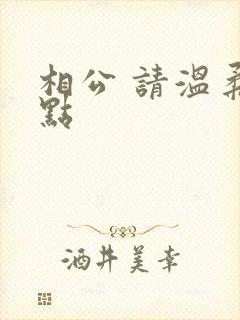 相公 請溫柔
點
酒井美幸